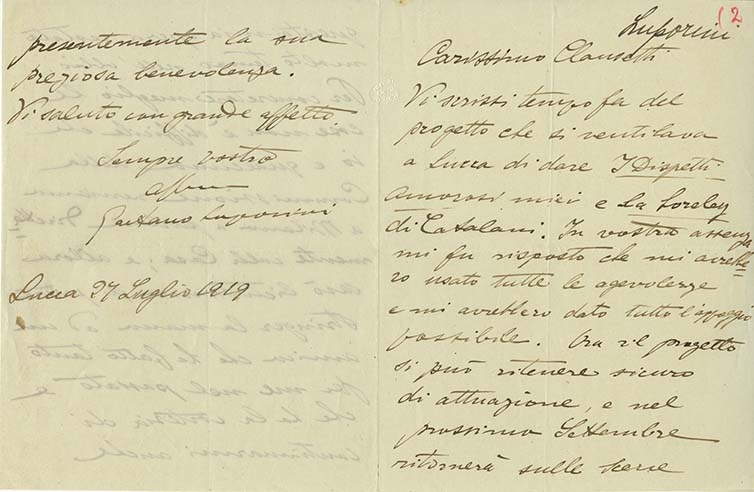 presentemente la sua
preziosa benevolenza.
Vi saluto con grande affetto
Sempre vostro
Gaetano Luporini
Lucca 27 Luglio 1919
(2
Luporini
Carissimo Clausetti
Vi scrissi tempo fa del
progetto che si ventilava
a Lucca di dare I Dispetti
amorosi miei e La Loreley
di Catalani. In vostra assenza
mi fu risposto che mi avrebbe=
ro usato tutte le agevolezze
e mi avrebbero dato tutto l'appoggio
possibile. Ora il progetto
si può ritenere sicuro
di attuazione, e nel
prossimo Settembre
ritornerà sulle scene